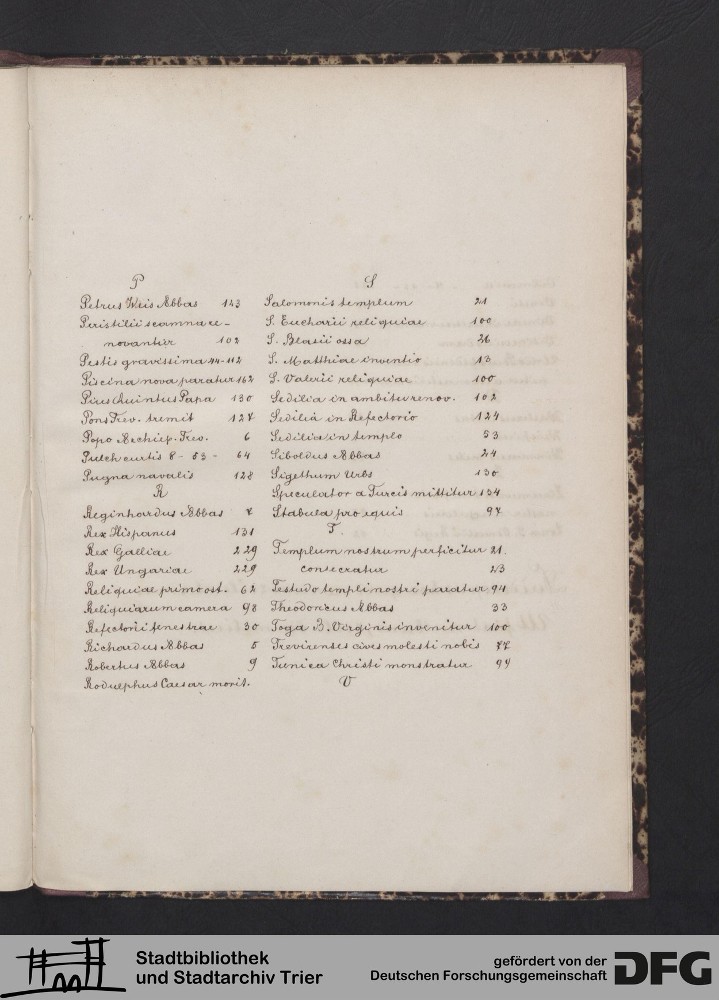 P
Petrus Weis Abbas 143
Peristilii scamna re-
novantur 102
Pestis gravissima 44-112
Piscina nova paratur 162
Pius Quintus Papa 130
Pons Trev. tremit 127
Popo Archiep. Trev. 6
Pulch curtis 8 - 53 - 64
Pugna navalis 128
R
Reginhardus Abbas 7
Rex Hispanus 131
Rex Galliae 229
Rex Ungariae 229
Reliquiae primo ost. 62
Reliquiarum camera 98
Refectorii fenestrae 30
Richardus Abbas 5
Robertus Abbas 9
Rodulphus Caesar morit.
S
Salomonis templum 21
S. Eucharii reliquiae 100
S. Blasii ossa 26
S. Matthiae inventio 13
S. Valerii reliquiae 100
Sedilia in ambitu renov. 102
Sedilia in Refectorio 124
Sedilia in templo 53
Siboldus Abbas 24
Sigethum Urbs 130
Speculator a Turcis mittitur 134
Stabula pro equis 97
T
Templum nostrum perficitur 21.
consecratur 23
Testudo templi nostri paratur 94
Theodoricus Abbas 33
Toga B. Virginis invenitur 100
Trevirenses cives molesti nobis 77
Tunica Christi monstratur 99
V
Stadtbibliothek
und Stadtarchiv Trier
gefördert von der
Deutschen Forschungsgemeinschaft
DFG